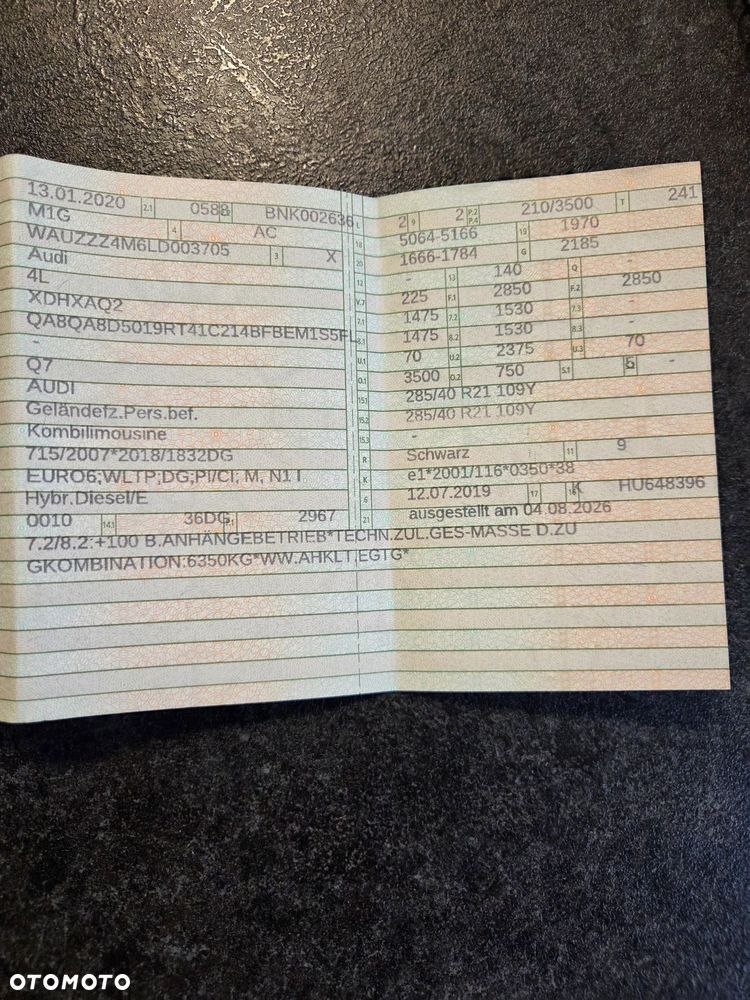 13.01.2020 2.1 0588 BNK002636
M1G 4 AC
WAUZZZ4M6LD003705 3 X
Audi
4L
XDHXAQ2
QA8QA8D5019RT41C214BFBEM1S5FL
-
Q7
AUDI
Geländefz.Pers.bef.
Kombilimousine
715/2007*2018/1832DG
EURO6;WLTP;DG;PI/CI; M, N1 I
Hybr.Diesel/E
0010 14.1 36DG 2967
L 2 9 2 P.2 P.4 210/3500 T 241
18 5064-5166 19 1970
20 1666-1784 G 2185
12 - 13 140 Q -
V.7 225 F.1 2850 F.2 2850
7.1 1475 7.2 1530 7.3 -
8.1 1475 8.2 1530 8.3 -
U.1 70 U.2 2375 U.3 70
O.1 3500 O.2 750 S.1 5 -
15.1 285/40 R21 109Y
15.2 285/40 R21 109Y
15.3 -
R Schwarz 11 9
K e1*2001/116*0350*38
6 12.07.2019 17 K HU648396
21 ausgestellt am 04.08.2026
7.2/8.2:+100 B.ANHÄNGEBETRIEB*TECHN.ZUL.GES-MASSE D.ZU
GKOMBINATION:6350KG*WW.AHKLT.EGTG*
OTOMOTO